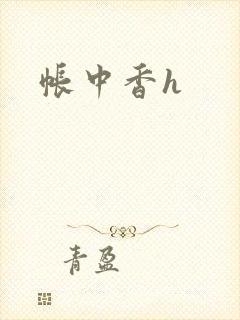 帳中香h
青盈